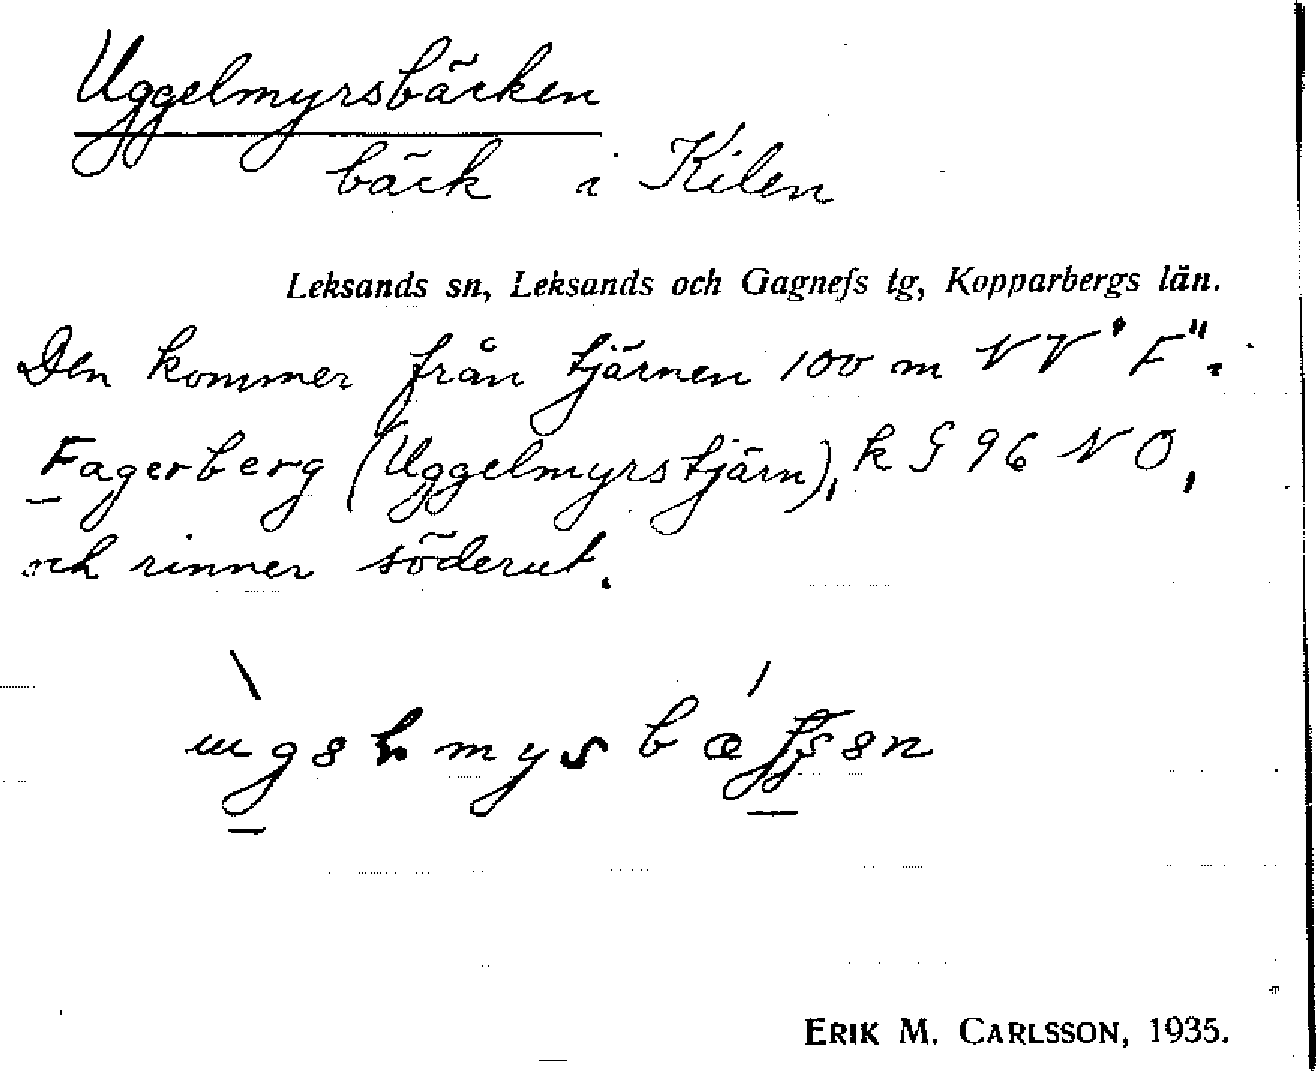 Uggelmyrsbäcken
bäck i Kilen
Leksands sn, Leksands och Gagnefs tg, Kopparbergs län.
Den kommer från tjärnen 100 m NV "F" i
Fagerberg (Uggelmyrstjärn), k G 96 NO,
och rinner söderut.
ERIK M. CARLSSON, 1935.